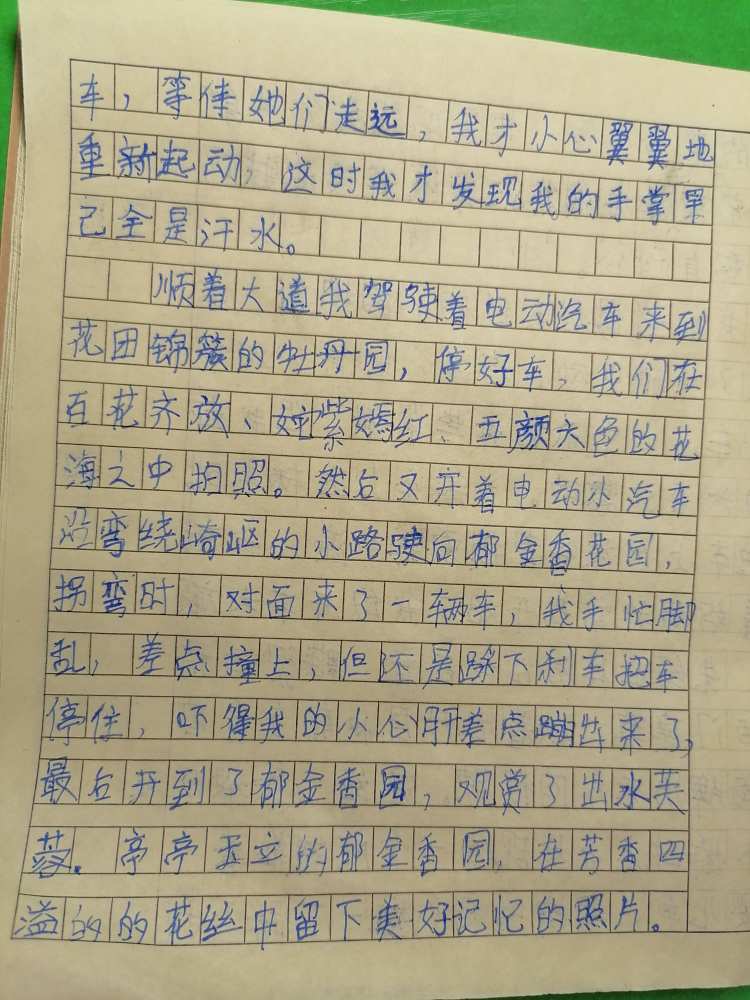 车，等待她们走远，我才小心翼翼地
重新起动，这时我才发现我的手掌里
已全是汗水。
顺着大道我驾驶着电动汽车来到
花团锦簇的牡丹园，停好车，我们在
百花齐放、姹紫嫣红、五颜六色的花
海之中拍照。然后又开着电动小汽车
沿弯绕崎岖的小路驶向郁金香花园，
拐弯时，对面来了一辆车，我手忙脚
乱，差点撞上，但还是踩下刹车把车
停住，吓得我的小心肝差点蹦出来了，
最后开到了郁金香园，观赏了出水芙
蓉．亭亭玉立的郁金香园，在芳香四
溢的的花丝中留下美好记忆的照片。